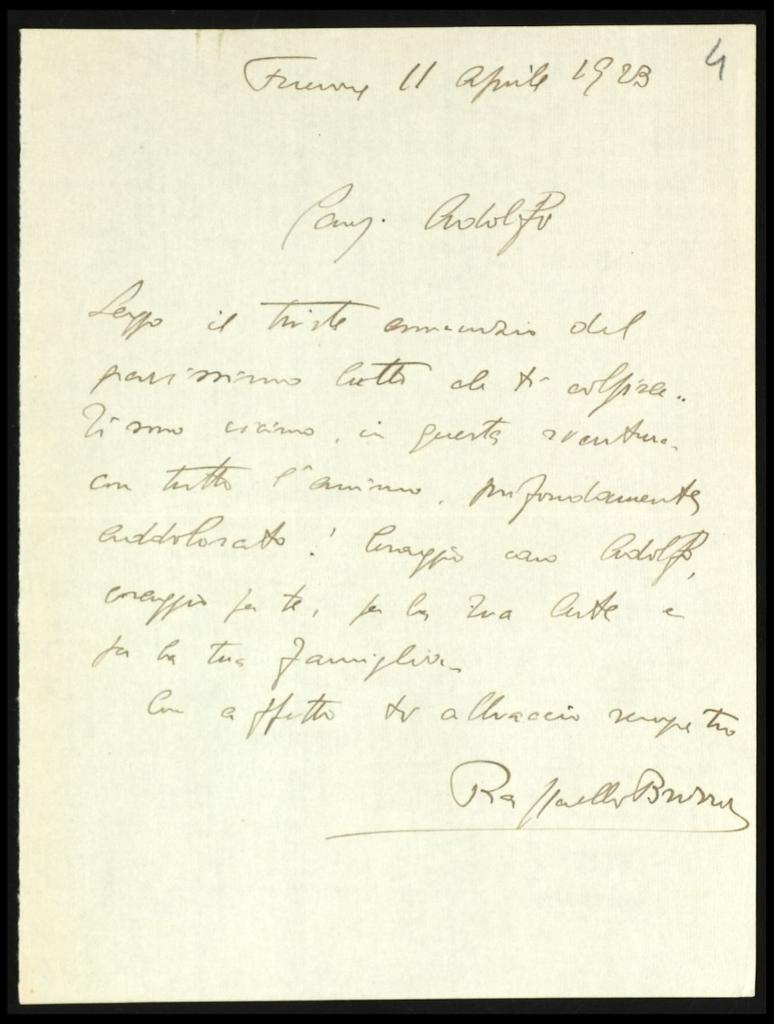 Firenze 11 Aprile 1923
4
Caro Adolfo
Leggo il triste annunzio del
gravissimo lutto che ti colpisce..
Ti sono vicino, in questa sventura
con tutto l'animo, profondamente
addolorato! Coraggio caro Adolfo,
coraggio per te, per la tua Arte e
per la tua famiglia.
Con affetto ti abbraccio sempre tuo
Raffaello